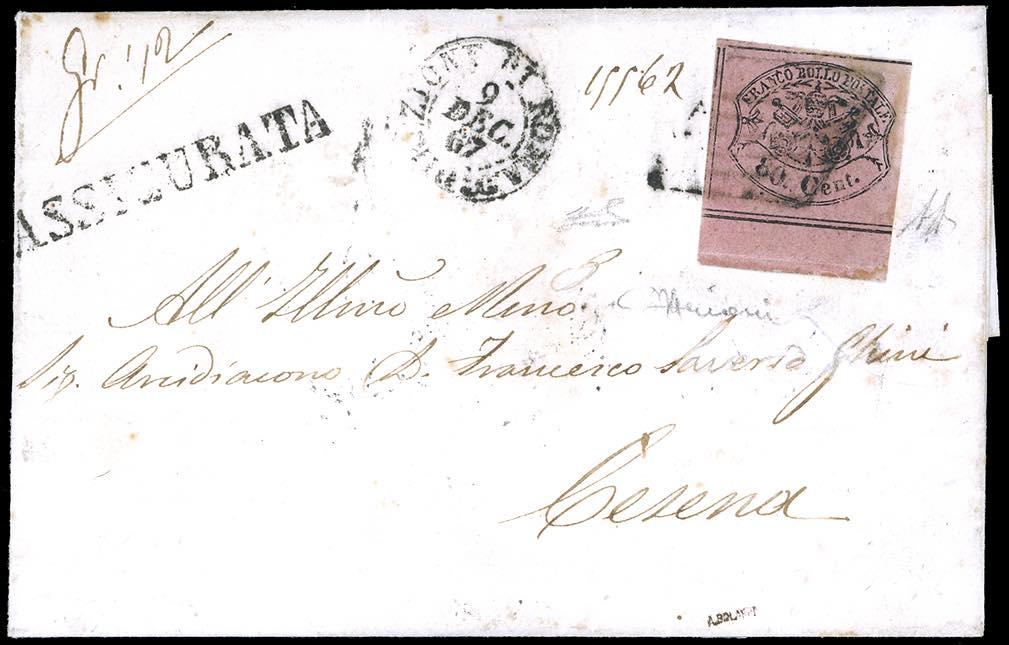 Gr. 12
ASSICURATA
DIREZIONE DI ROMA
9
DEC.
67
15562
FRANCO BOLLO POSTALE
80. Cent.
All'Illmo
Sig. Arcidiacono D. Francesco Saverio Ghini
Cesena
A.BOLAFFI